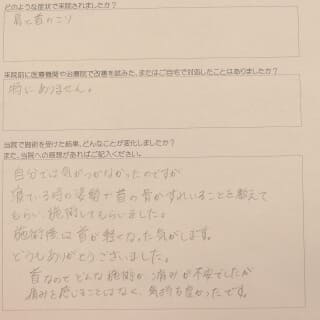 どのような症状で来院されましたか?
肩と首のこり
来院前に医療機関や治療院で改善を試みた、またはご自宅で対処したことはありましたか?
特にありません。
当院で施術を受けた結果、どんなことが変化しましたか?
また、当院への感想があればご記入ください。
自分では気がつかなかったのですが
寝ている時の姿勢で首の骨がずれいることを教えて
もらい、施術してもらいました。
施術後は首が軽くなった気がします。
どうもありがとうございました。
首なのでどんな施術か痛みが不安でしたが
痛みを感じることはなく、気持ち良かったです。